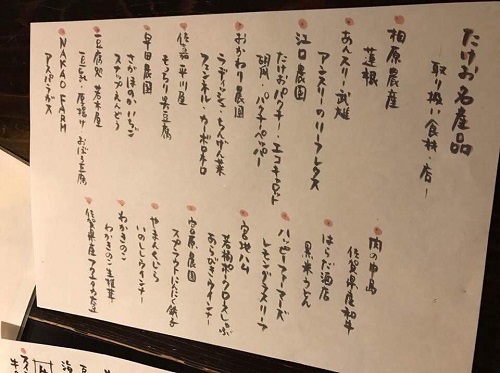 たけお名産品
取り扱い食材・店
相原農産
蓮根
あんスリー武雄
アンスリーのリーフレタス
江口農園
たけおパクチー・エコキャロット
胡瓜・パクチーペッパー
おかわり農園
ラディッシュ・ちんげん菜
フェンネル・カーボロネロ
佐嘉平川屋
もっちり呉豆腐
早田農園
さがほのかいちご
スナップえんどう
豆腐処 若木屋
豆乳・厚揚げ おぼろ豆腐
NAKAO FARM
アスパラガス
肉の中島
佐賀県産和牛
はらだ酒店
黒米うどん
ハッピーファーマーズ
レモングラスリーフ
宮地ハム
若楠ポークロースしゃぶ
あらびきウインナー
宮原農園
スプラウトにんにく
やまんくじら
いのししウインナー
わかきのこ
わかきのこ生椎茸